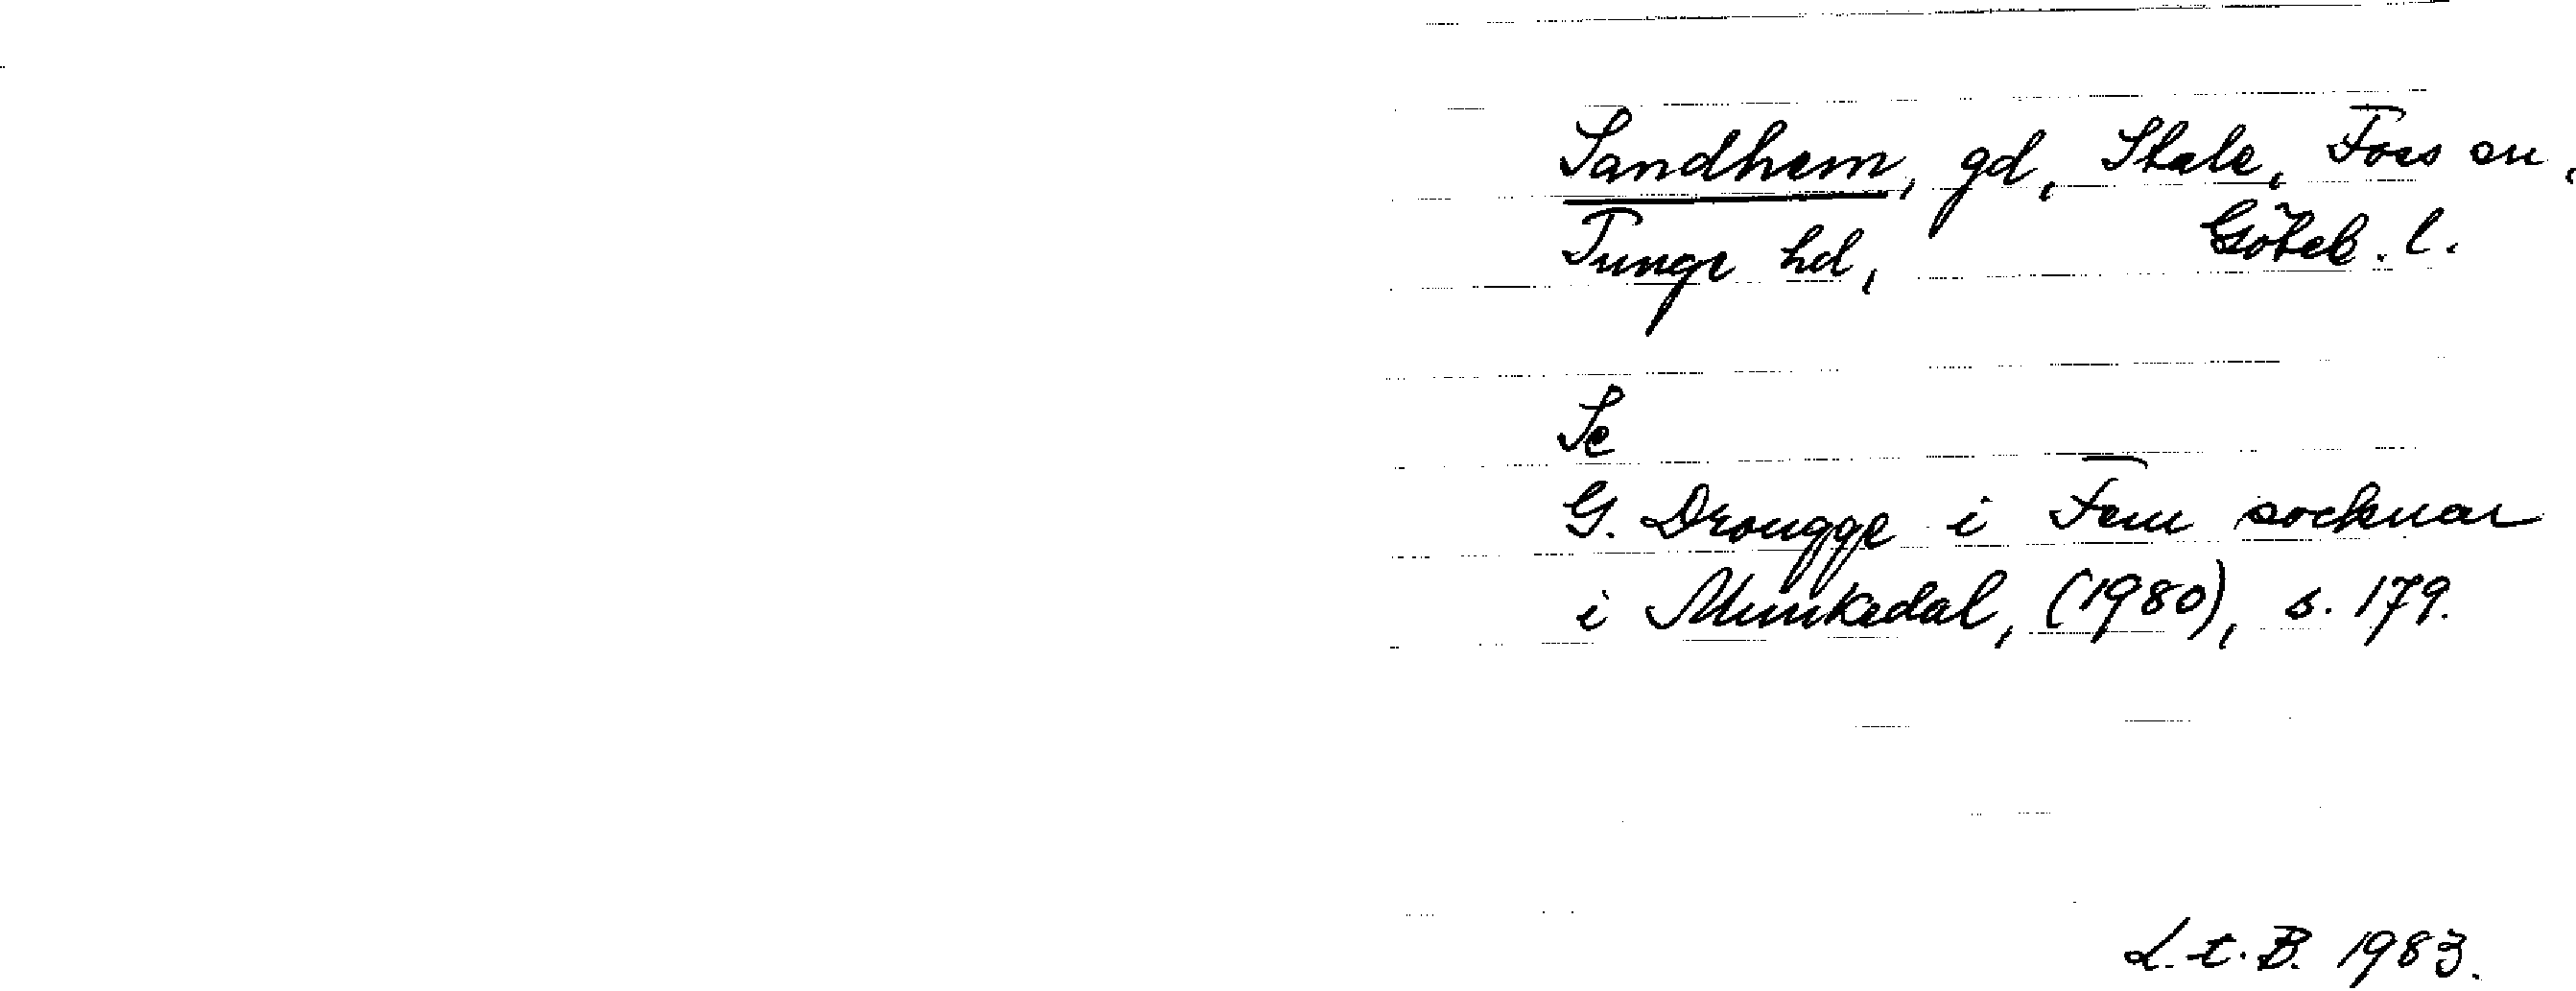 Sandhem, gd, Stale, Foss sn,
Tunge hd, Göteb. l.
Se
G. Drougge i Fem socknar
i Munkedal, (1980), s. 179.
L. t. B. 1983.